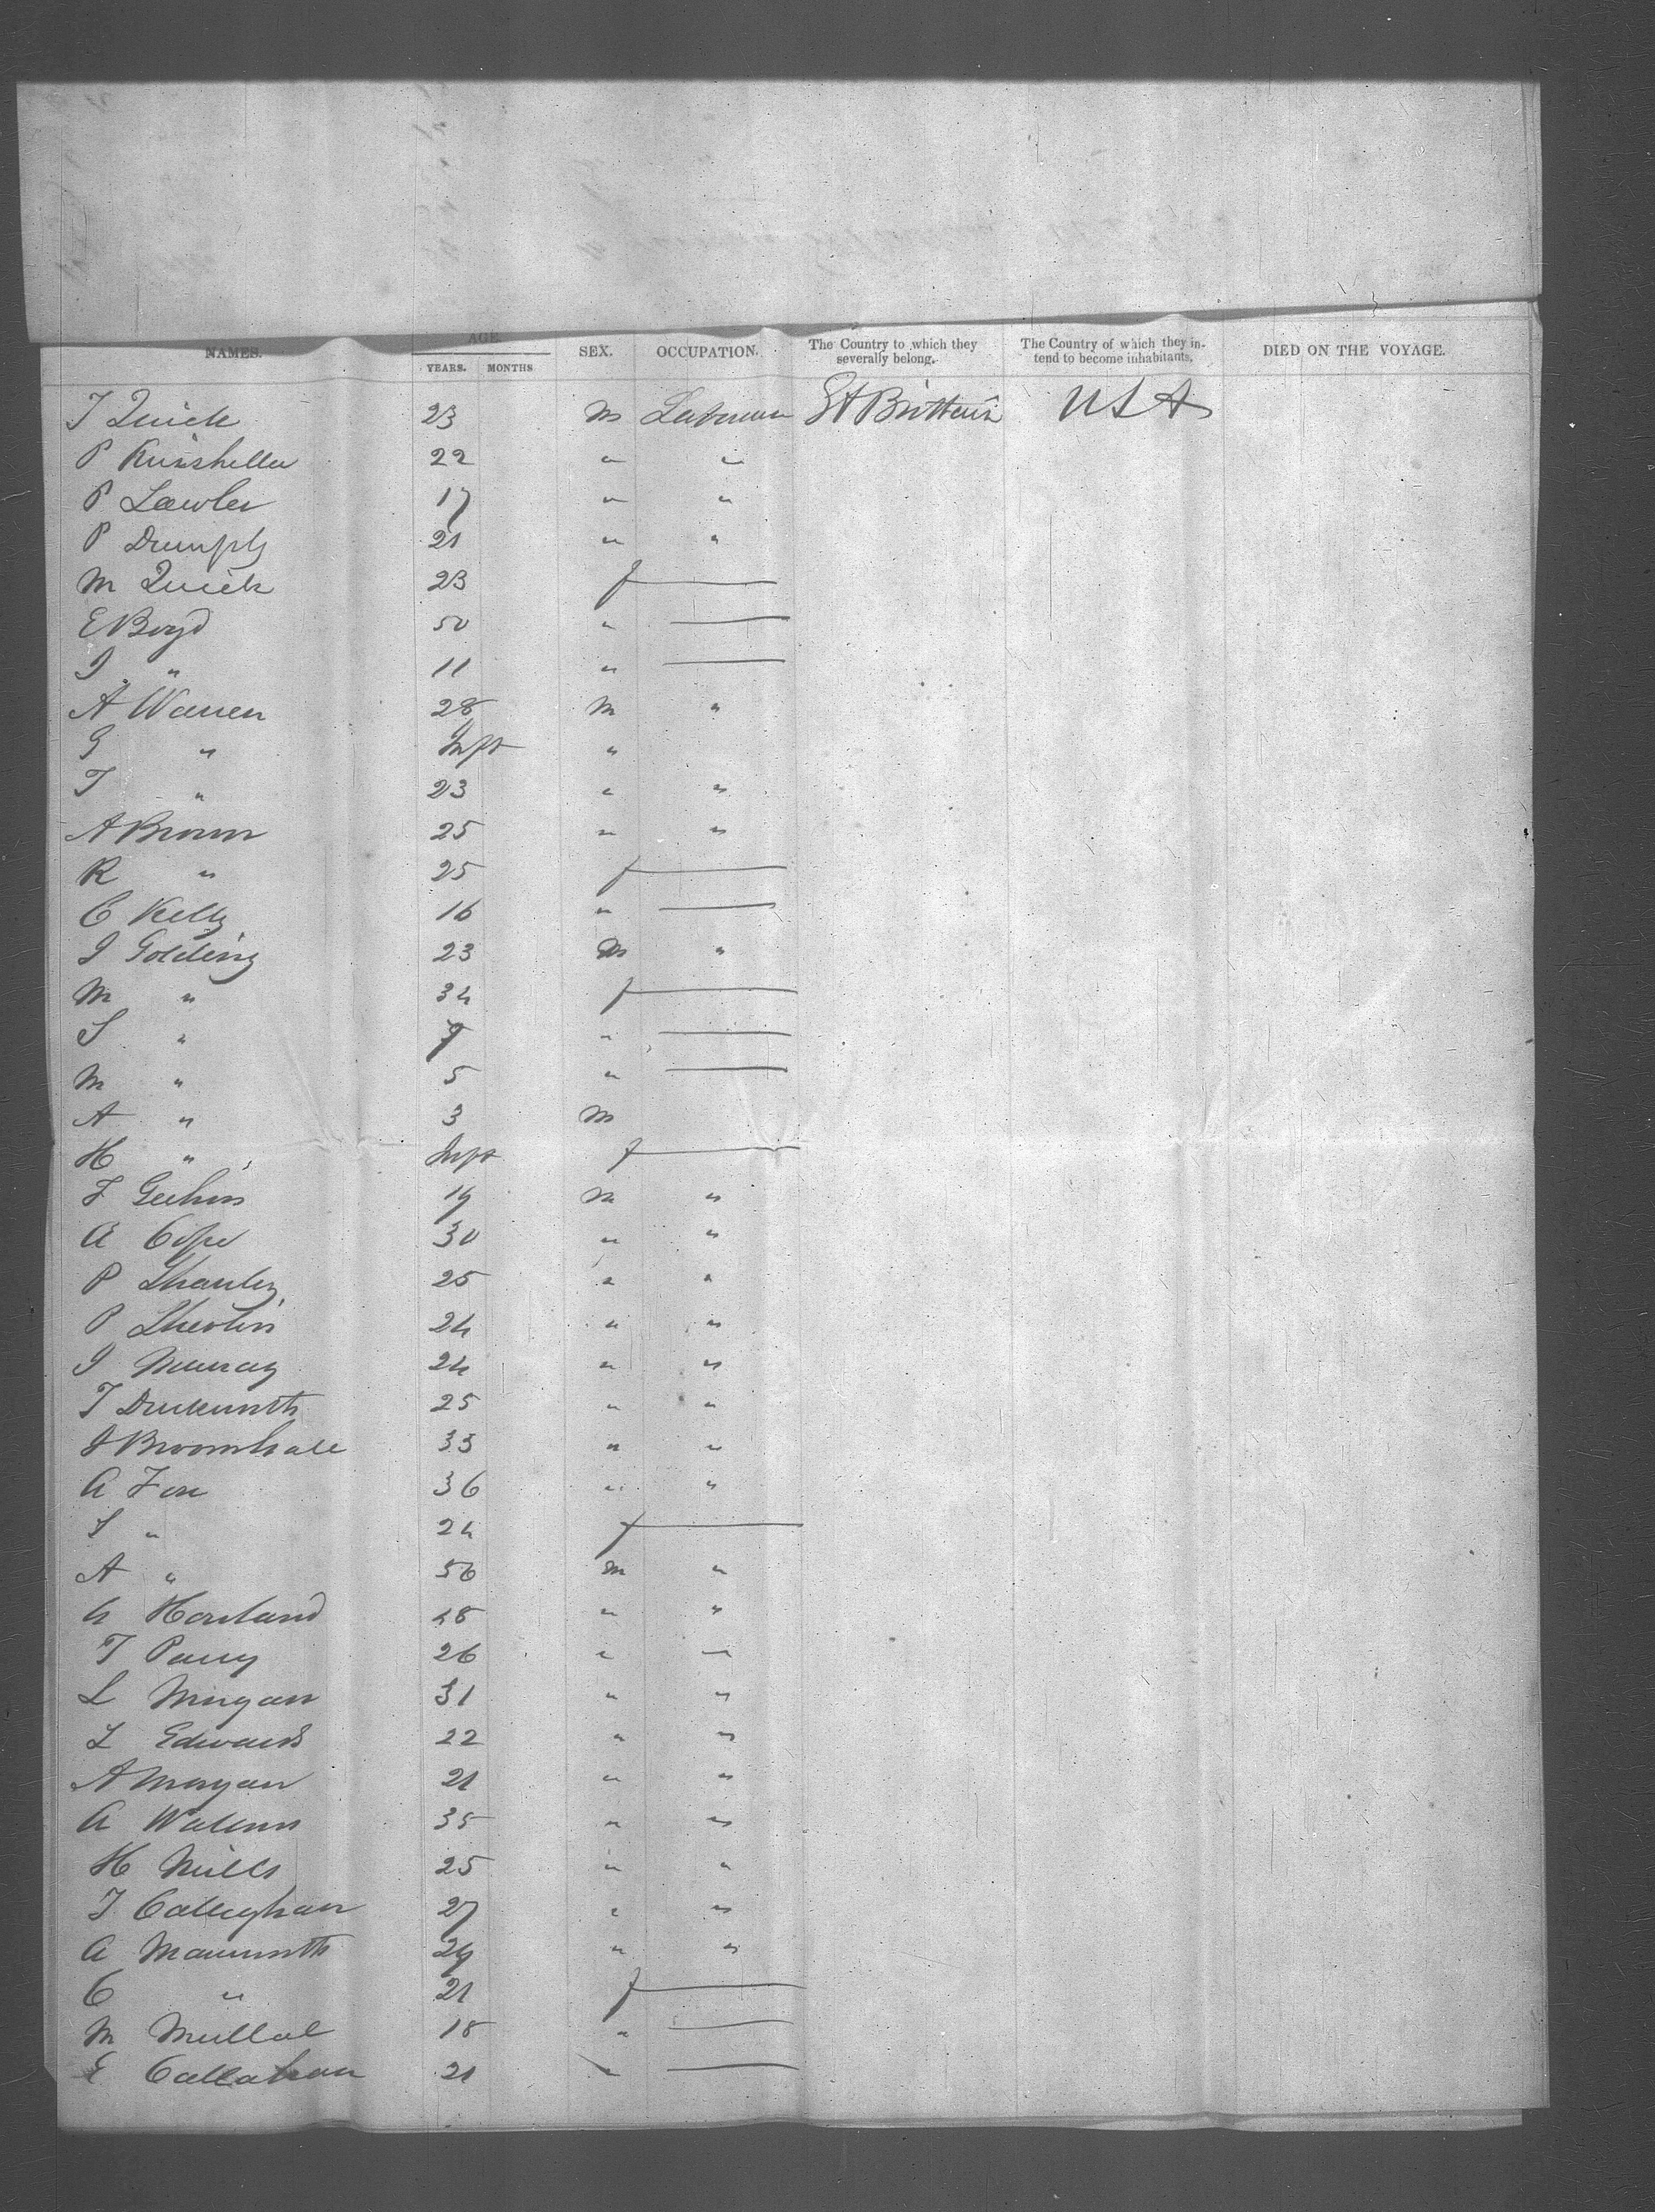 NAMES. AGE. YEARS. MONTHS SEX. OCCUPATION. The Country to which they severally belong. The Country of which they intend to become inhabitants. DIED ON THE VOYAGE.
T Quick 23 m Labourer Gt Brittain USA
P 22 " "
P Lawler 17 " "
P 21 " "
M Quick 23 f —
E Boyd 50 " —
J " 11 " —
A Warren 28 m "
G " Inft "
T " 23 " "
A Brown 25 " "
R " 25 f —
C Kelly 16 " —
J Golding 23 m "
M " 34 f —
S " 9 " —
M " 5 " —
A " 3 m
H " Inft f —
19 m "
A Cope 30 " "
P Shanley 25 " "
P Shevlin 24 " "
J Murray 24 " "
T 25 " "
J Broomhall 33 " "
A Fox 36 " "
S " 24 f —
A " 56 m "
G 48 " "
T Parry 26 " "
L Morgan 31 " "
L Edwards 22 " "
A Morgan 21 " "
A 35 " "
H Mills 25 " "
T Calleghan 27 " "
A 29 " "
C " 21 f —
M 18 " —
E Callahan 21 " —